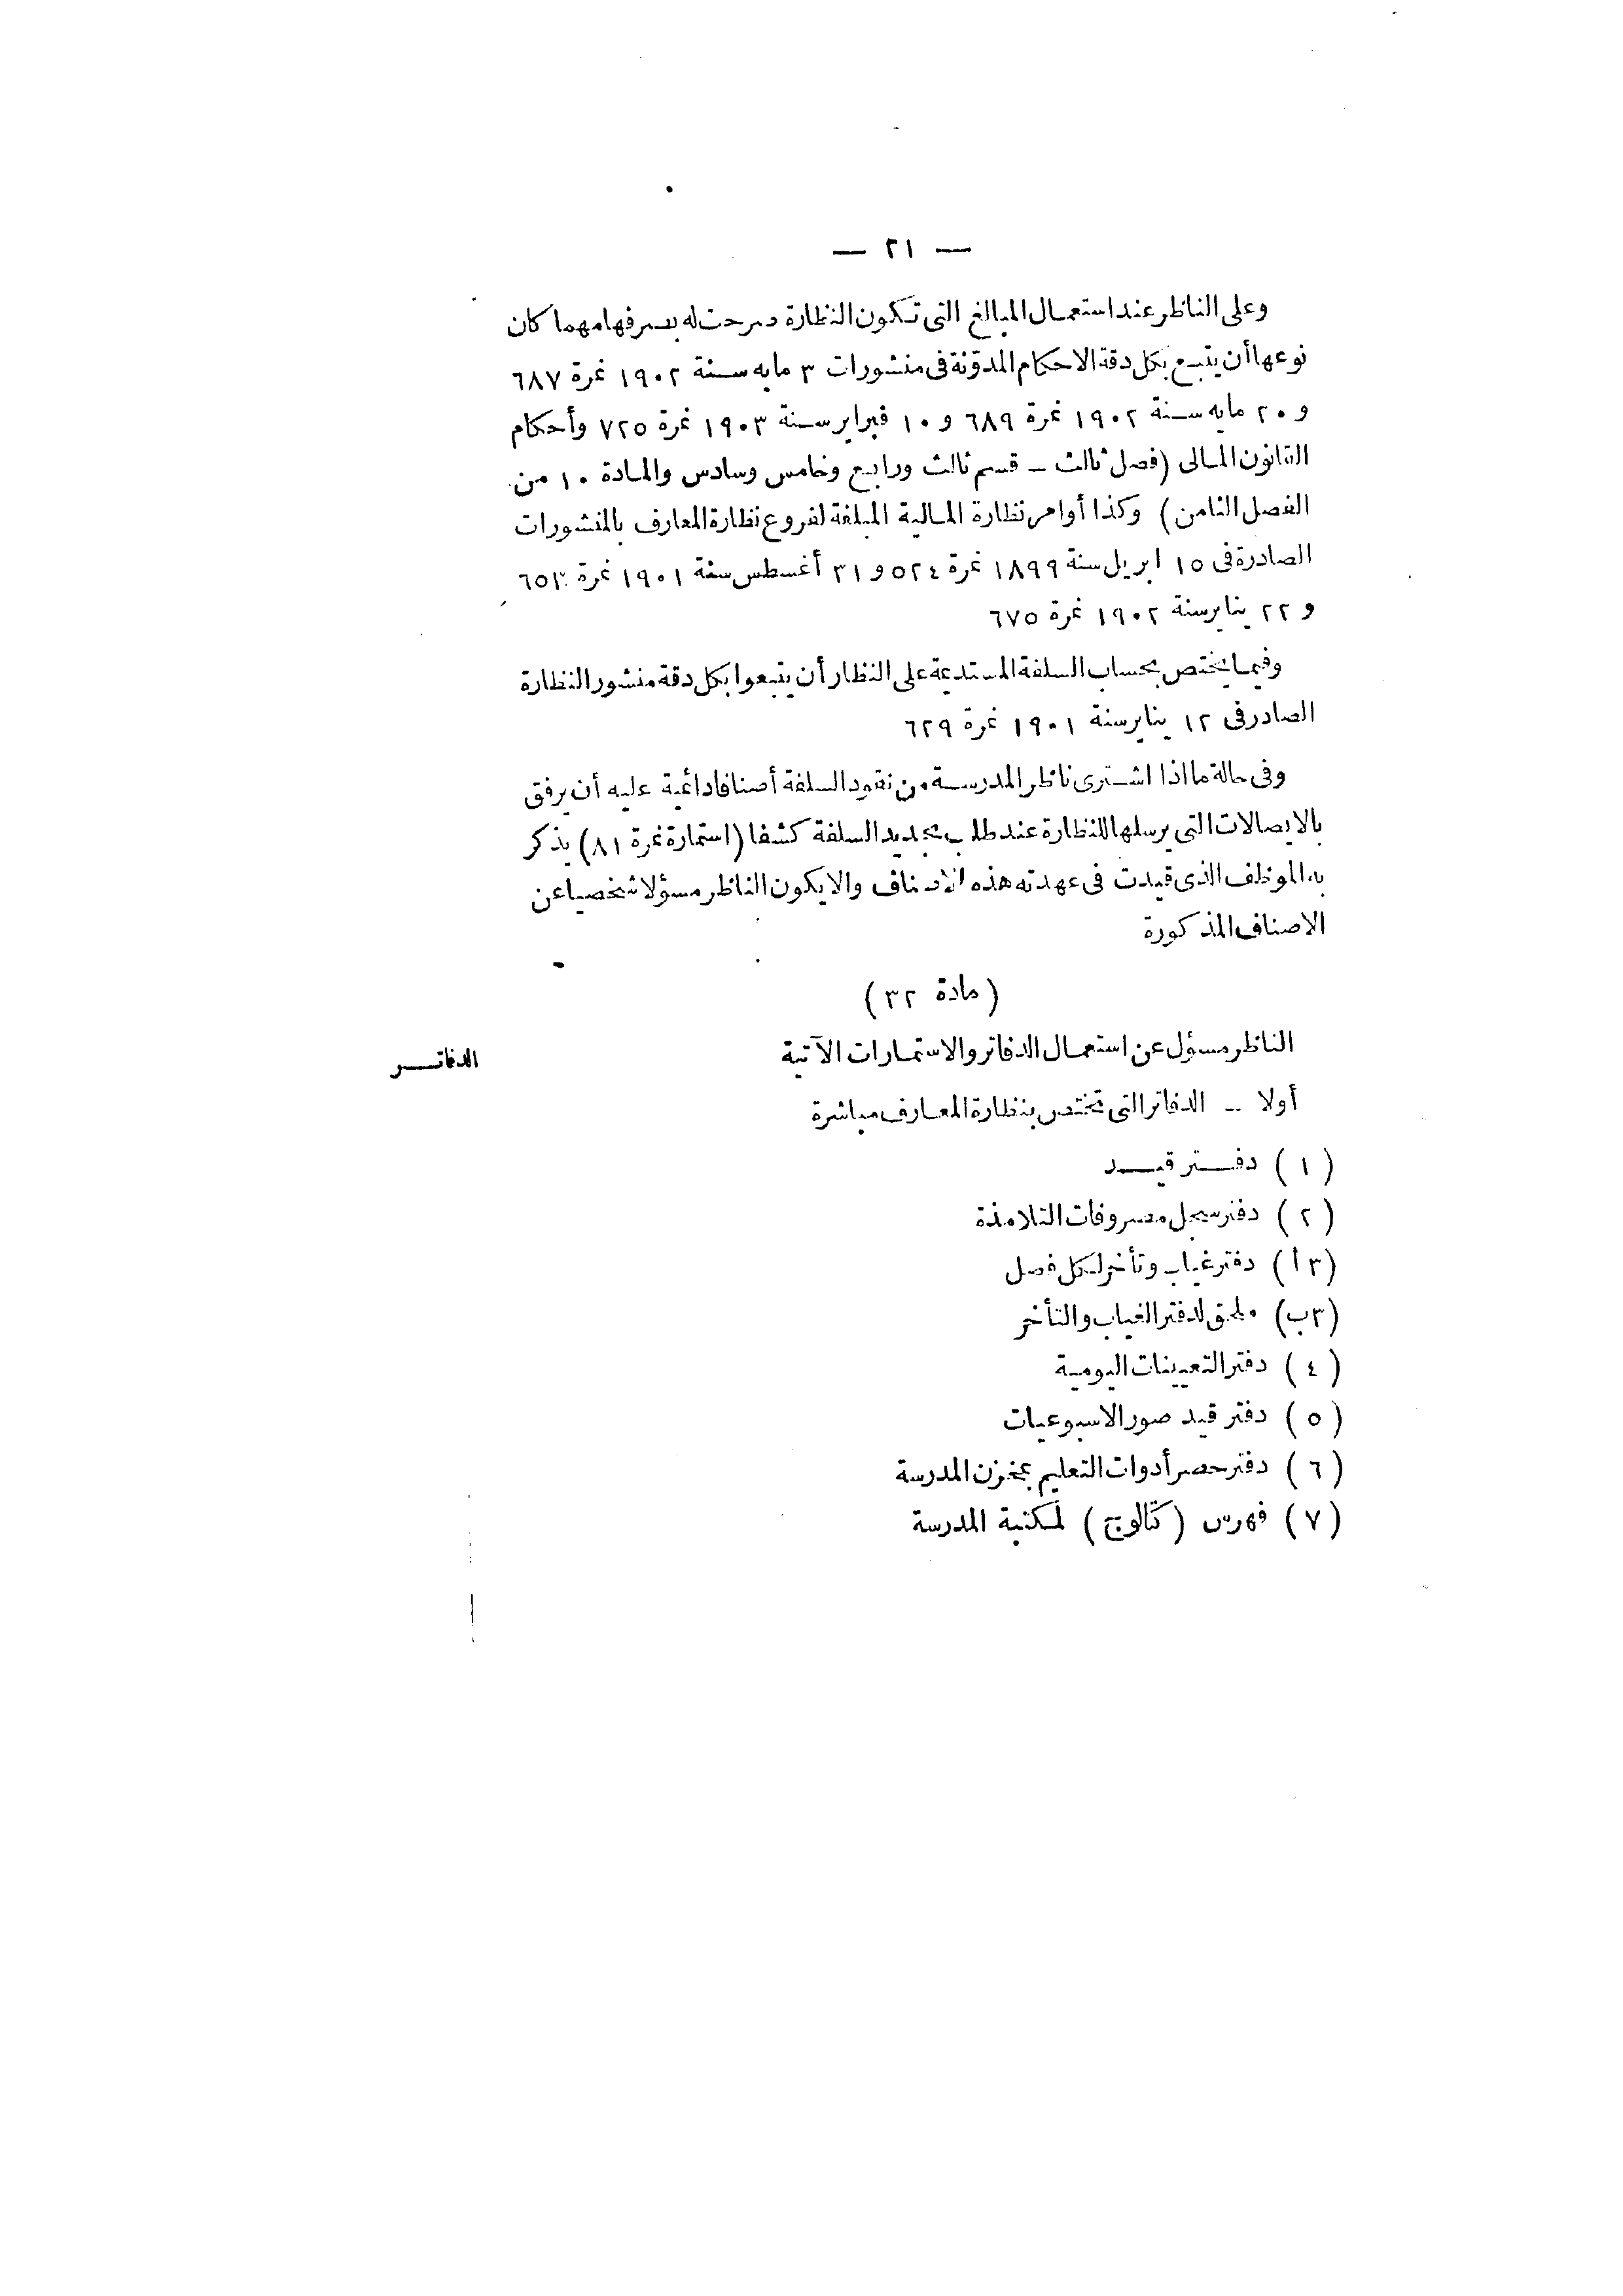 — ٢١ —
وعلى الناظر عند استعمال المبالغ التى تكون النظارة صرحت له بصرفها مهما كان
نوعها أن يتبع بكل دقة الاحكام المدوّنة فى منشورات ٣ مايه سنة ١٩٠٢ نمرة ٦٨٧
و ٢٠ مايه سنة ١٩٠٢ نمرة ٦٨٩ و ١٠ فبراير سنة ١٩٠٣ نمرة ٧٢٥ وأحكام
القانون المالى (فصل ثالث – قسم ثالث ورابع وخامس وسادس والمادة ١٠ من
الفصل الثامن) وكذا أوامر نظارة المالية المبلغة لفروع نظارة المعارف بالمنشورات
الصادرة فى ١٥ ابريل سنة ١٨٩٩ نمرة ٥٢٤ و ٣١ أغسطس سنة ١٩٠١ نمرة ٦٥٣
و ٢٢ يناير سنة ١٩٠٢ نمرة ٦٧٥
وفيما يختص بحساب السلفة المستديمة على النظار أن يتبعوا بكل دقة منشور النظارة
الصادر فى ١٢ يناير سنة ١٩٠١ نمرة ٦٢٩
وفى حالة ما اذا اشترى ناظر المدرسة من نقود السلفة أصنافا دائمية عليه أن يرفق
بالايصالات التى يرسلها للنظارة عند طلب تجديد السلفة كشفا (استمارة نمرة ٨١) يذكر
به الموظف الذى قيدت فى عهدته هذه الاصناف والا يكون الناظر مسؤلا شخصيا عن
الاصناف المذكورة
(مادة ٣٢)
الناظر مسؤل عن استعمال الدفاتر والاستمارات الآتية
الدفاتر
أولا – الدفاتر التى تختص بنظارة المعارف مباشرة
(١) دفتر قيد
(٢) دفتر سجل مصروفات التلامذة
(٣ ا) دفتر غياب وتأخر لكل فصل
(٣ ب) ملحق لدفتر الغياب والتأخر
(٤) دفتر التعيينات اليومية
(٥) دفتر قيد صور الاسبوعيات
(٦) دفتر حصر أدوات التعليم بمخزن المدرسة
(٧) فهرس (كتالوج) لمكتبة المدرسة